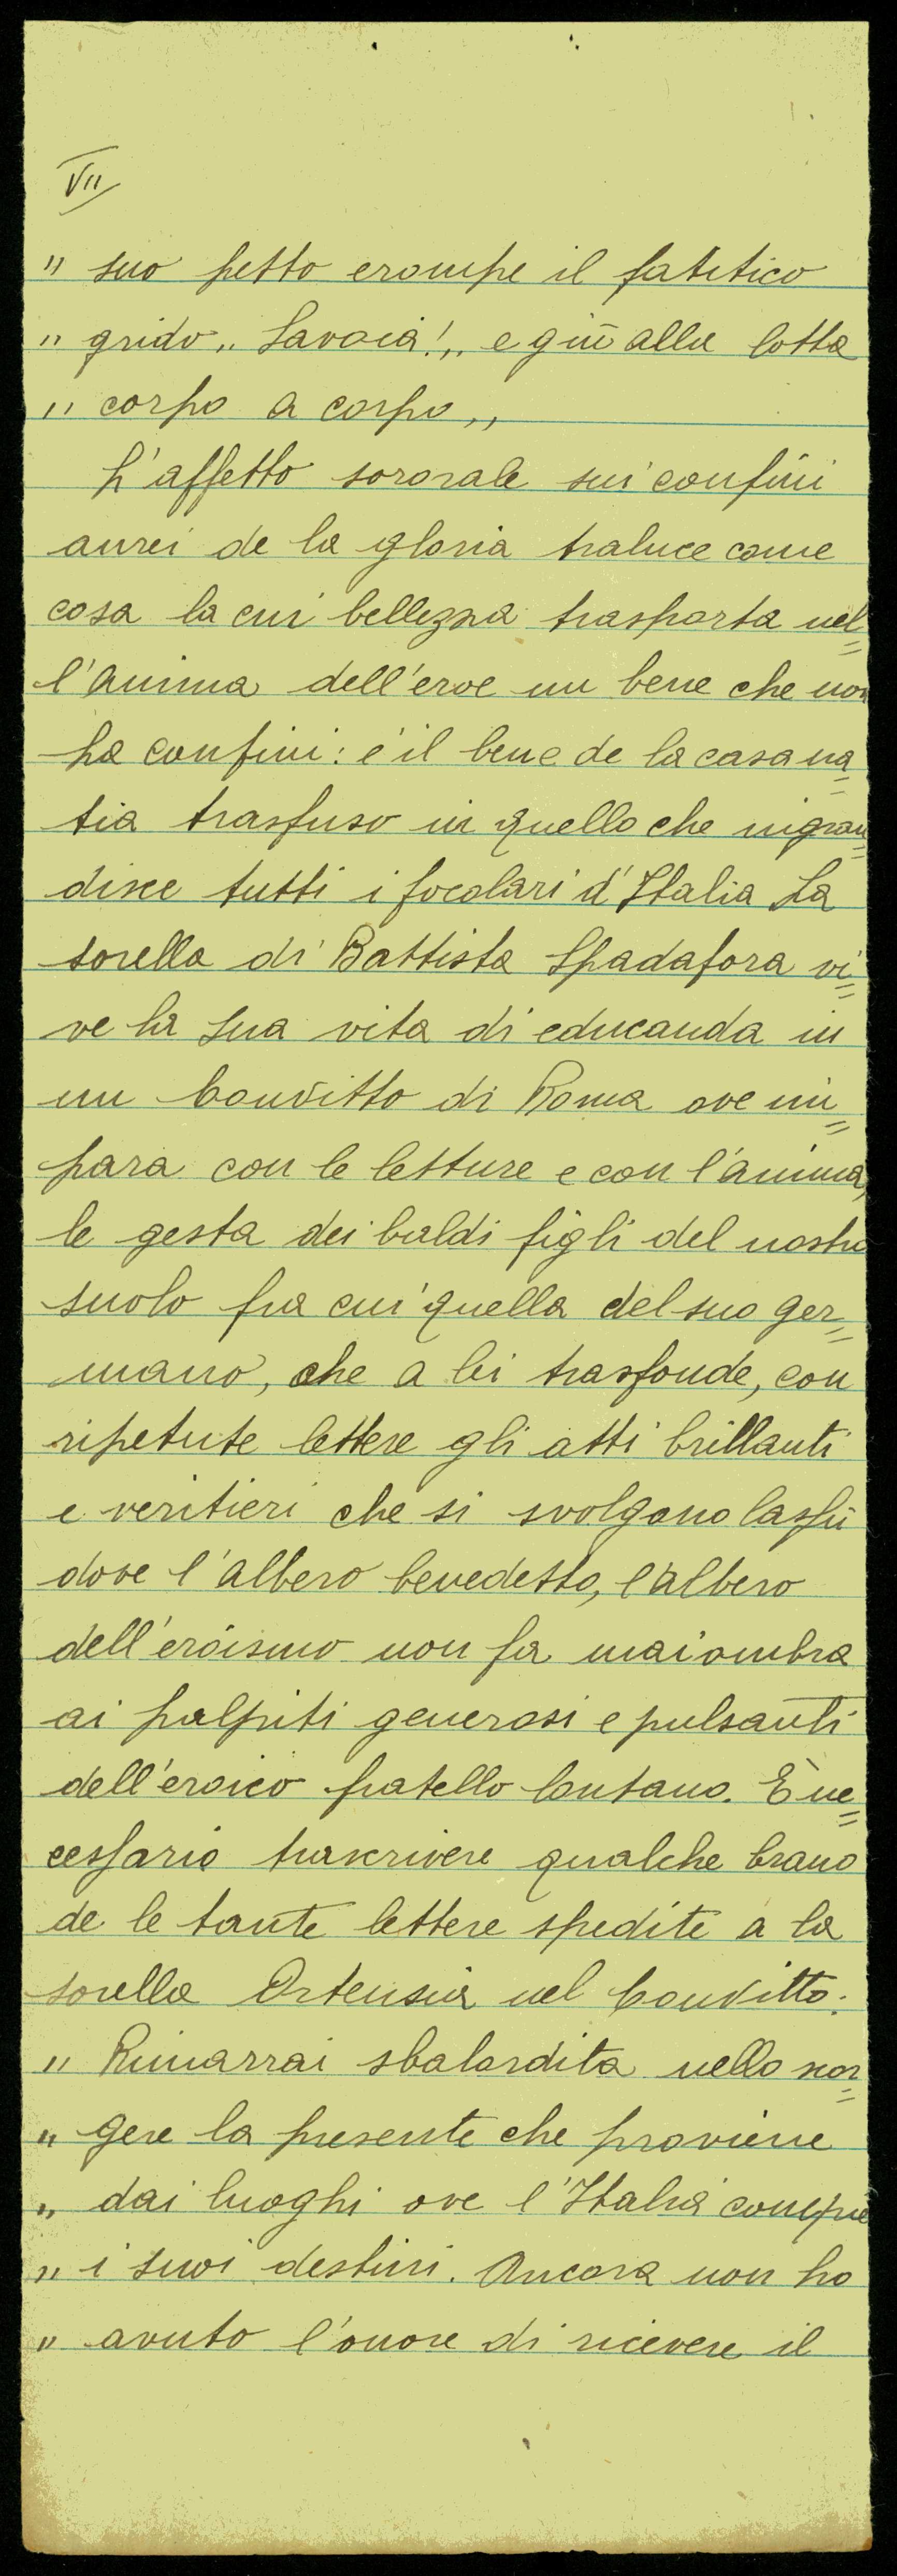 VII
" suo petto erompe il fatitico
" grido ,, Savoia! ,, e giù alla lotta
" corpo a corpo ,,
L'affetto sororale sui confini
aurei de la gloria traluce come
cosa la cui bellezza trasporta nel=
l'anima dell'eroe un bene che non
ha confini: é il bene de la casa na=
tia trasfuso in quello che ingran=
disce tutti i focolari d'Italia La
sorella di Battista Spadafora vi=
ve la sua vita di educanda in
un Convitto di Roma ove im=
para con le letture e con l'anima,
le gesta dei baldi figli del nostro
suolo fra cui quella del suo ger=
mano, che a lei trasfonde, con
ripetute lettere gli atti brillanti
e veritieri che si svolgono lassù
dove l'albero benedetto, l'albero
dell'eroismo non fa mai ombra
ai palpiti generosi e pulsanti
dell'eroico fratello lontano. È ne=
cessario trascrivere qualche brano
de le tante lettere spedite a la
sorella Ortensia nel Convitto:
" Rimarrai sbalordita nello scor=
" gere la presente che proviene
" dai luoghi ove l'Italia compie
" i suoi destini. Ancora non ho
" avuto l'onore di ricevere il